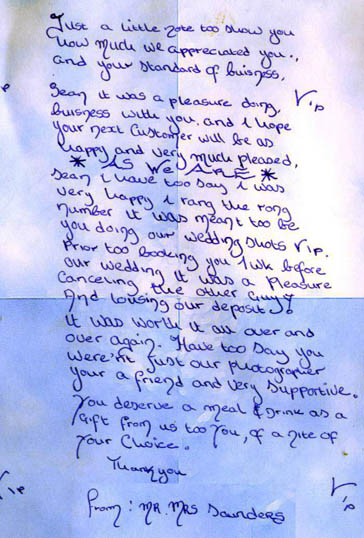 Just a little note too show you
how much we appreciated you..,
and your standard of buisness,
Sean it was a pleasure doing,
buisness with you. and i hope
your next Customer will be as
happy and very much pleased,
* AS WE ARE *
Sean i have too say i was
very happy i rang the rong
number it was meant too be
you doing our wedding shots V.i.p.
Prior too booking you 1wk before
our wedding it was a Pleasure
Canceling the other Guy &
And lousing our deposit,
it was worth it all over and
over again. Have too Say you
weren't just our photographer
your a friend and very supportive.
You deserve a meal & drink as a
Gift from us too you, of a nite of
Your Choice.
Thankyou
From: MR. MRS Saunders
V.i.p
V.i.p
V.i.p
P